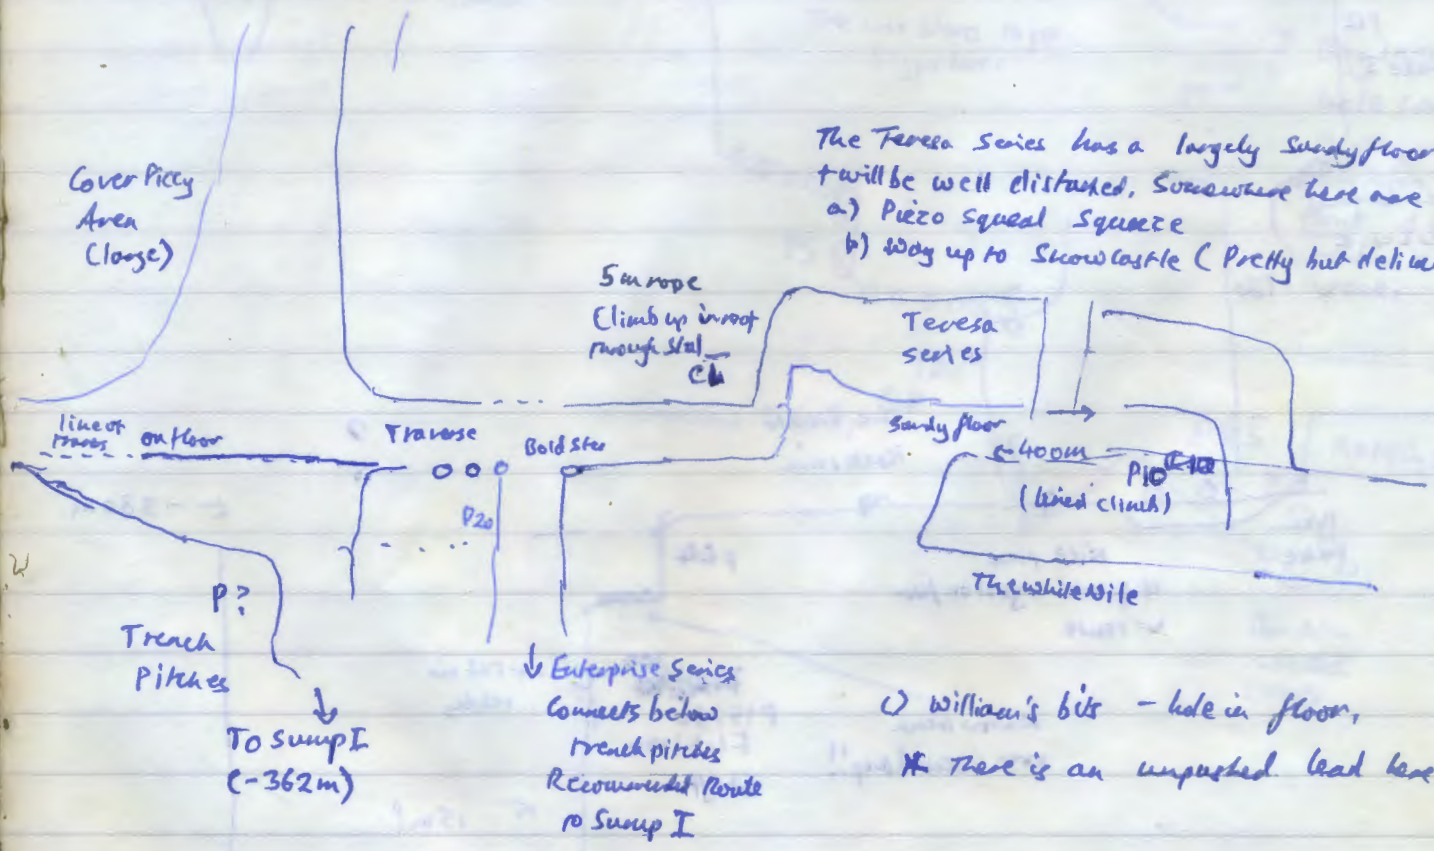 The Teresa Series has a largely Sandy floor
+ will be well disturbed. Somewhere here are
a) Piezo Squeal Squeeze
b) way up to Snowcastle (Pretty but
Cover Piccy
Area
(large)
5m rope
Climb up in roof
through stal
C4
Teresa
series
line of
on floor
Traverse
Bold Step
Sandy floor
←400m
P10
(lined climb)
P20
The white Nile
P?
Trench
Pitches
To Sump I
(-362m)
↓ Enterprise Series
Connects below
trench pitches
Recommended Route
to Sump I
c) William's bits - hole in floor,
* There is an unpushed lead here